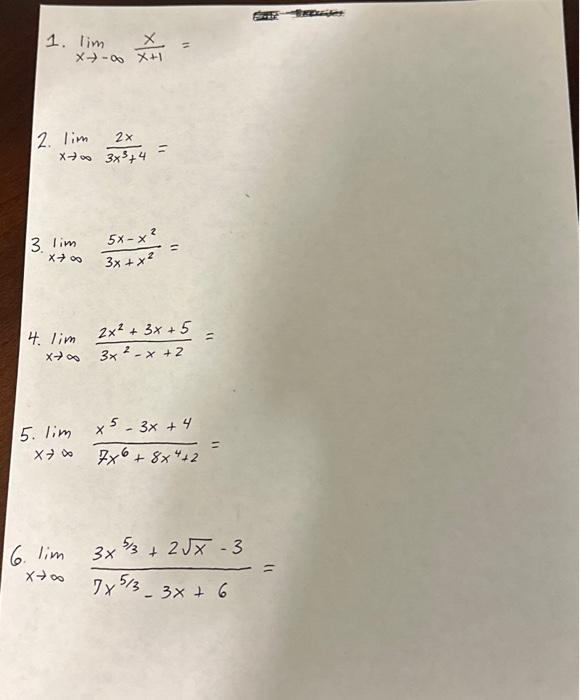 1. lim x→-∞ x/(x+1) =
2. lim x→∞ 2x/(3x³+4) =
3. lim x→∞ (5x-x²)/(3x+x²) =
4. lim x→∞ (2x²+3x+5)/(3x²-x+2) =
5. lim x→∞ (x⁵-3x+4)/(7x⁶+8x⁴+2) =
6. lim x→∞ (3x^(5/3)+2√x-3)/(7x^(5/3)-3x+6) =